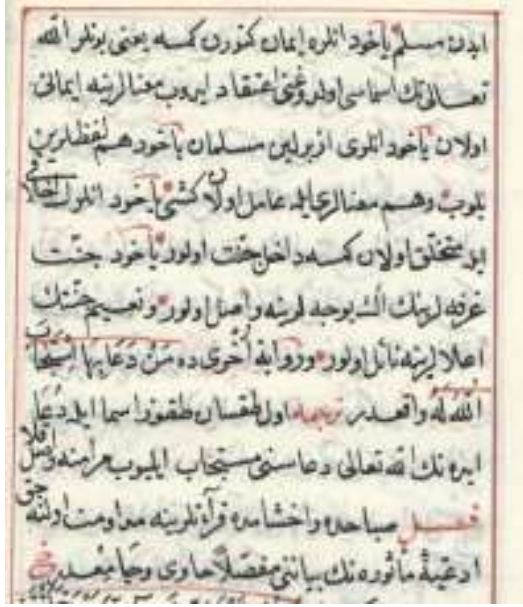 ایدن مسلم یاخود انلره ایمان کتورن کمسه یعنی بونلر الله
تعالی نك اسماسی اولدوغنی اعتقاد ایروب معنالرینه ایمانی
اولان یاخود انلری ازبرلین مسلمان یاخود هم لفظلرین
بلوب وهم معنالری ایله عامل اولان کشی یاخود انلرك اخلاقی
ایله متخلق اولان کمسه داخل جنت اولور یاخود جنت
غرفه لرینك الك یوجه لرینه واصل اولور ونعیم جنتك
اعلالرینه نائل اولور وروایة اخری ده مَنْ دَعَا بِهَا اسْتَجَابَ
اللّٰه لَهُ واقعدر ترجمه اول طقسان طقوز اسما ایله دعا
ایده نك الله تعالی دعاسنی مستجاب ایلیوب مرامنه واصل
فصل صباحده واخشامده قرائتلرینه مداومت اولنه جق
ادعیۀ مأثوره نك بیاننی مفصلاً حاوی